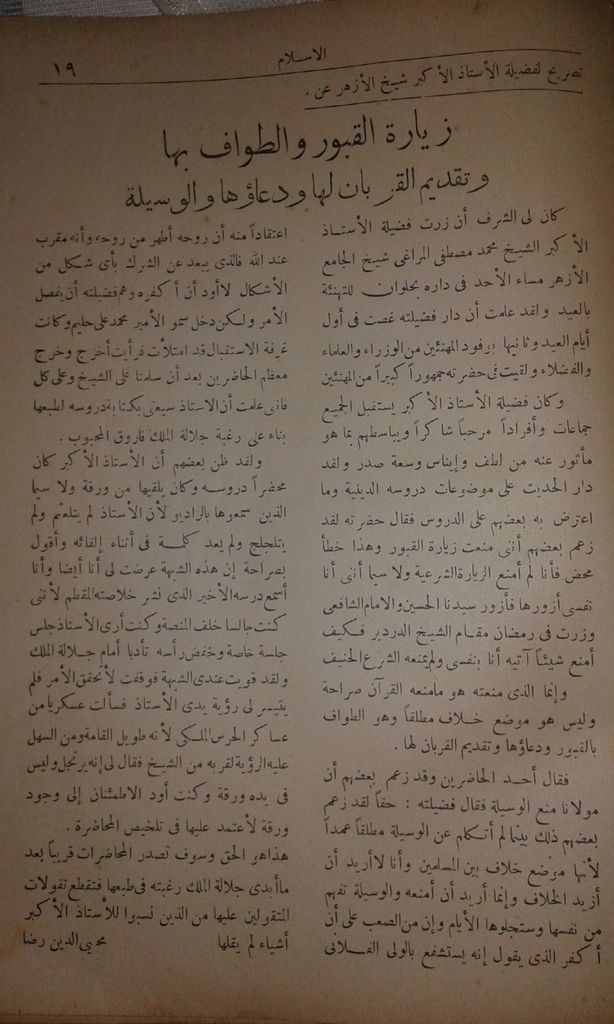 الاسلام
١٩
تصريح لفضيلة الأستاذ الأكبر شيخ الأزهر عن .
زيارة القبور والطواف بها
وتقديم القربان لها ودعاؤها والوسيلة
كان لى الشرف أن زرت فضيلة الأستاذ
الأكبر الشيخ محمد مصطفى المراغى شيخ الجامع
الأزهر مساء الأحد فى داره بحلوان للتهنئة
بالعيد ولقد علمت أن دار فضيلته غصت فى أول
أيام العيد وثانيها بوفود المهنئين من الوزراء والعلماء
والفضلاء ولقيت فى حضرته جمهوراً كبيراً من المهنئين
وكان فضيلة الأستاذ الأكبر يستقبل الجميع
جماعات وأفراداً مرحباً شاكراً ويباسطهم بما هو
مأثور عنه من لطف وإيناس وسعة صدر ولقد
دار الحديث على موضوعات دروسه الدينية وما
اعترض به بعضهم على الدروس فقال حضرته لقد
زعم بعضهم أننى منعت زيارة القبور وهذا خطأ
محض فأنا لم أمنع الزيارة الشرعية ولا سيما أننى أنا
نفسى أزورها فأزور سيدنا الحسين والامام الشافعى
وزرت فى رمضان مقام الشيخ الدردير فكيف
أمنع شيئاً آتيه أنا بنفسى ولم يمنعه الشرع الحنيف
وإنما الذى منعته هو مامنعه القرآن صراحة
وليس هو موضع خلاف مطلقاً وهو الطواف
بالقبور ودعاؤها وتقديم القربان لها .
فقال أحد الحاضرين وقد زعم بعضهم أن
مولانا منع الوسيلة فقال فضيلته : حقاً لقد زعم
بعضهم ذلك بينما لم أتكلم عن الوسيلة مطلقاً عمداً
لأنها موضع خلاف بين المسلمين وأنا لاأريد أن
أزيد الخلاف وإنما أريد أن أمنعه والوسيلة تفهم
من نفسها وستجلوها الأيام وإن من الصعب على أن
أكفر الذى يقول إنه يستشفع بالولى الفلانى
اعتقاداً منه أن روحه أطهر من روحه وأنه مقرب
عند الله فالذى يبعد عن الشرك بأى شكل من
الأشكال لاأود أن أكفره وهم فضيلته أن يفصل
الأمر ولكن دخل سمو الأمير محمد على حليم وكانت
غرفة الاستقبال قد امتلأت فرأيت أخرج وخرج
معظم الحاضرين بعد أن سلمنا على الشيخ وعلى كل
فانى علمت أن الاستاذ سيعنى بكتابة دروسه لطبعها
بناء على رغبة جلالة الملك فاروق المحبوب .
ولقد ظن بعضهم أن الأستاذ الأكبر كان
محضراً دروسه وكان يلقيها من ورقة ولا سيما
الذين سمعوها بالراديو لأن الأستاذ لم يتلعثم ولم
يتلجلج ولم يعد كلمة فى أثناء إلقائه وأقول
بصراحة إن هذه الشبهة عرضت لى أنا أيضا وأنا
أسمع درسه الأخير الذى نشر خلاصته المقطم لأننى
كنت جالسا خلف المنصة وكنت أرى الأستاذ جلس
جلسة خاصة وخفض رأسه تأدبا أمام جلالة الملك
ولقد قويت عندى الشبهة فوقفت لأتحقق الأمر فلم
يتيسر لى رؤية يدى الأستاذ فسألت عسكريا من
عساكر الحرس الملكى لأنه طويل القامة ومن السهل
عليه الرؤية لقربه من الشيخ فقال لى إنه يرتجل وليس
فى يده ورقة وكنت أود الاطمئنان إلى وجود
ورقة لأعتمد عليها فى تلخيص المحاضرة .
هذا هو الحق وسوف تصدر المحاضرات قريباً بعد
ماأبدى جلالة الملك رغبته فى طبعها فتقطع تقولات
المتقولين عليها من الذين نسبوا للأستاذ الأكبر
أشياء لم يقلها محيى الدين رضا